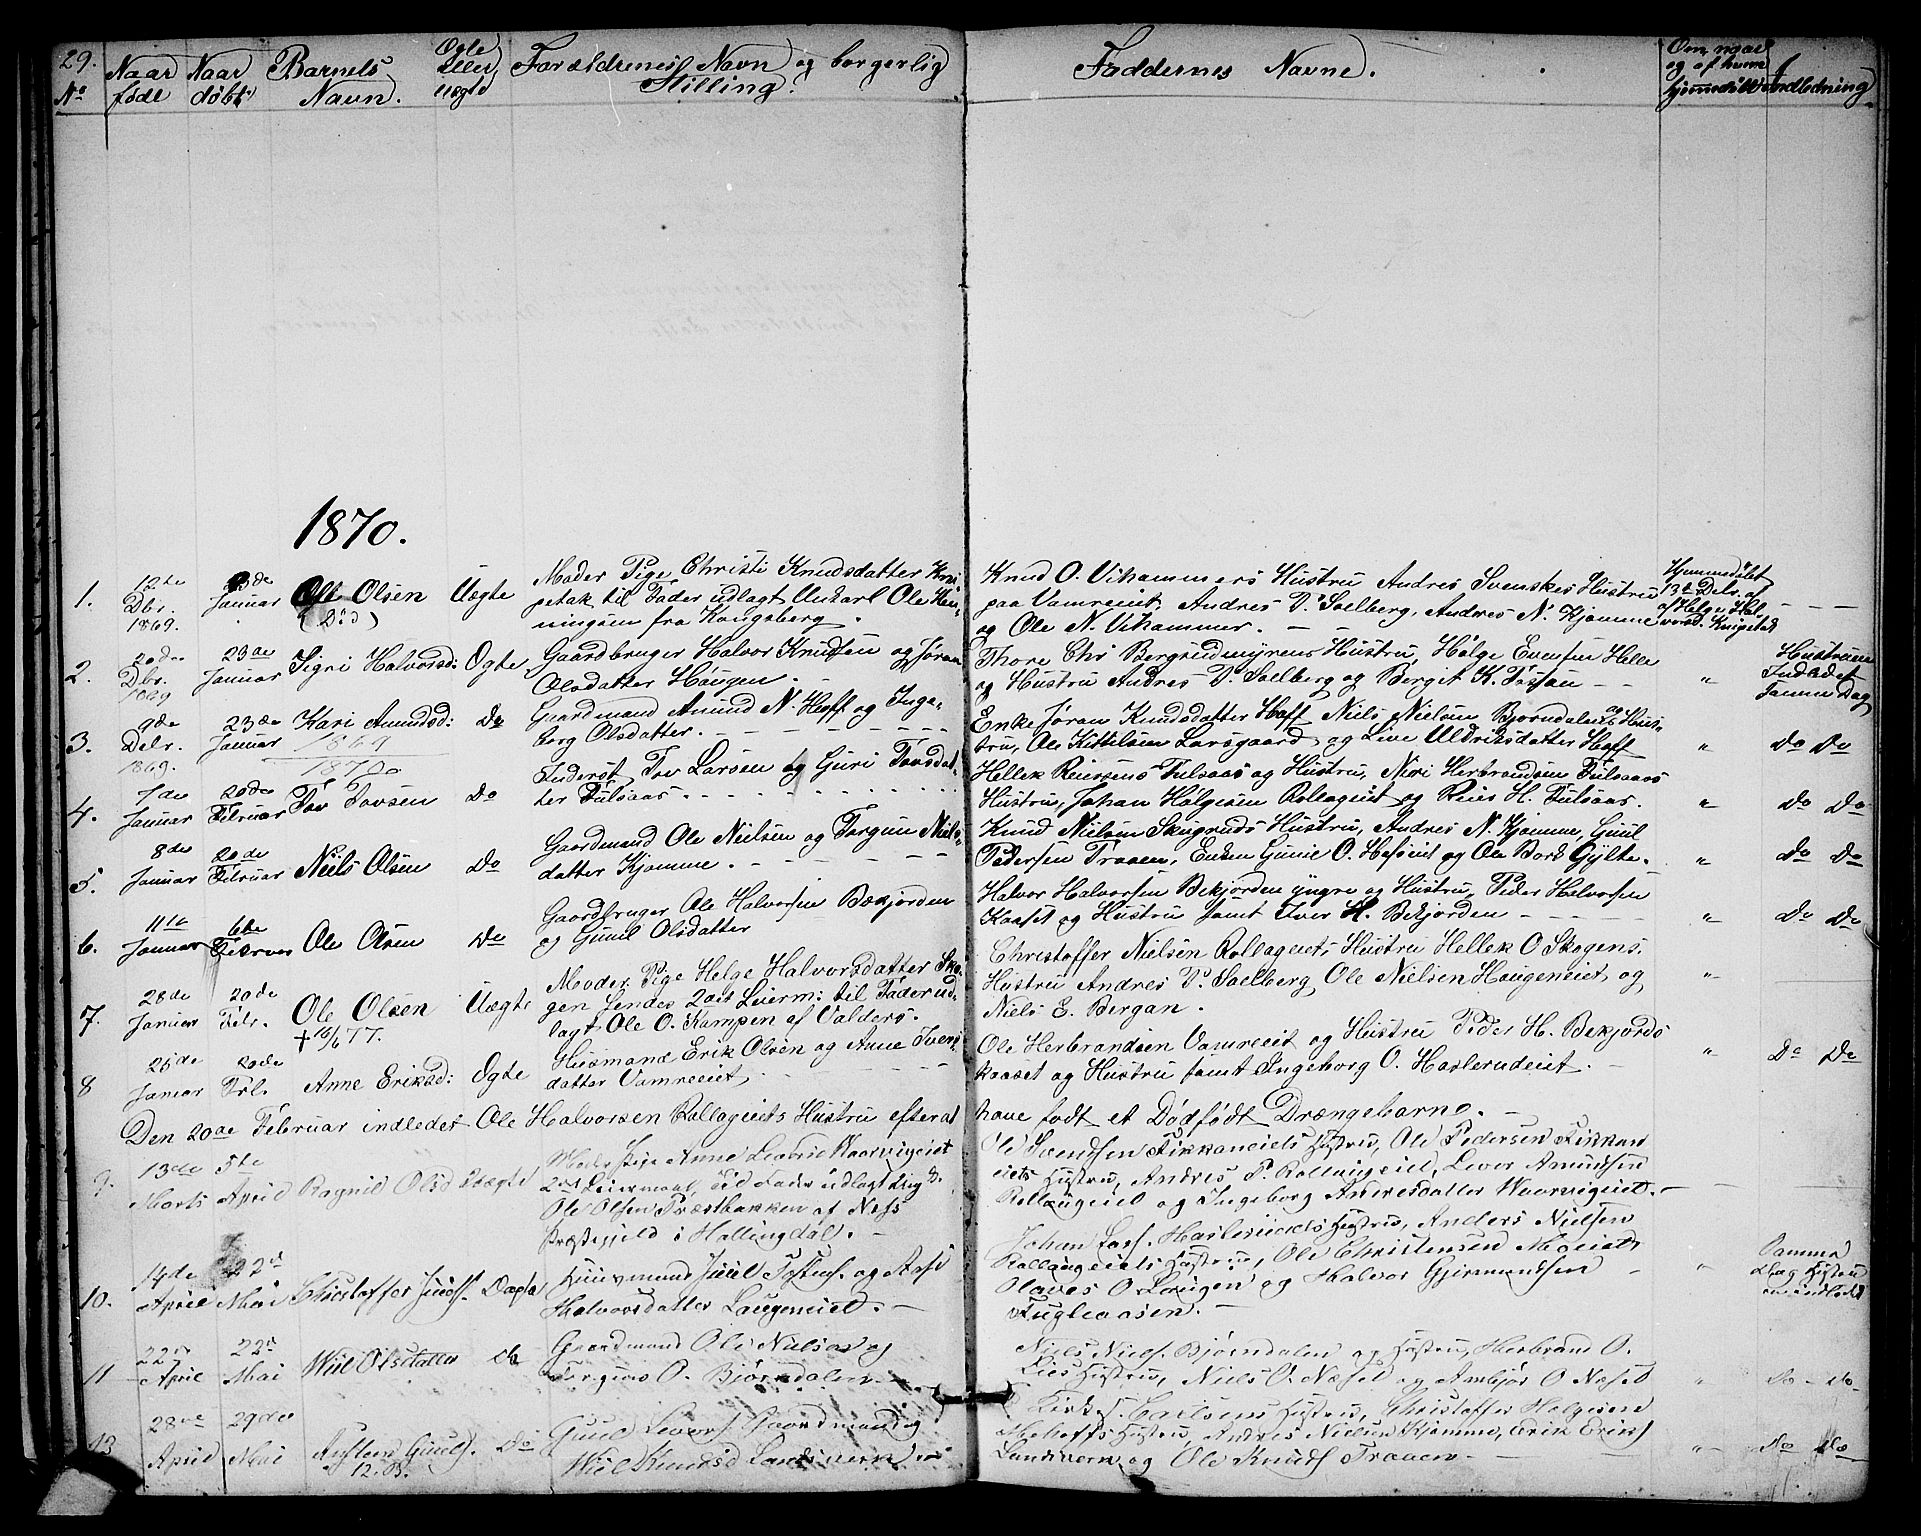 29.
No
Naar
født
Naar
døbt
Barnets
Navn.
Ogte
Eller
Uægte
Forældrenes Navn og borgerlig
Stilling.
Faddernes Navne.
Om, naar
og af hvem
hjemmedøbt
Indledning
1870.
1.
12te
Dbr.
1869.
23de
Januar
Ole Olsen
Uægte
Moder Pige Christi Knudsdatter Kni-
petak til Fader udlagt Unkarl Ole Hen-
ningsen fra Kongsberg.
Knud O. Vihammers Hustru Andres Svenskes Hustru
paa Vamreeiet, Andres P. Soelberg, Andres N. Kjomme
og Ole N. Vihammer.
Hjemmedøbt
13de Debr. af
af Helge Hal-
vorsd. Knipetak
2.
20de
Dbr.
1869
23de
Januar
Sigri Halvorsd:
Ogte
Gaardbruger Halvor Knudsen og Jøran
Olsdatter Haugen.
Thore Chr Bergrudmyrens Hustru, Helge Evensen Helle
og Hustru Andres P. Soelberg og Bergit K. Fossan
"
Hustruen
Indledet
samme Dag
3.
9de
Debr.
1869.
23de
Januar
Kari Amundsd:
1869
Do
Gaardmand Amund N. Hoff og Inge-
borg Olsdatter.
Enke Jøran Knudsdatter Hoff Niels Nielsen Bjorndalens og Hus-
tru, Ole Kittilsen Larsgaard og Live Uldriksdatter Hoff
"
Do Do
1870
4.
7de
Januar
20de
Februar
Tov Tovsen
Do
Inderst Tov Larsen og Guri Tovsdat-
ter Fulsaas.
Hellek Reiersens Fulsaas og Hustru, Niri Herbrandsen Fulsaas
Hustru, Johan Helgesen Rollageiet og Reier H. Fulsaas.
"
Do Do
5.
8de
Januar
20de
Februar
Niels Olsen
Do
Gaardmand Ole Nielsen og Torgun Niels-
datter Kjomme.
Knud Nielsen Skugruds Hustru, Andres N. Kjomme, Guul
Pedersen Traaen, Enken Gunil O. Hofseiet og Ole Bork Gylte.
"
Do Do
6.
11te
Januar
6te
Februar
Ole Olsen
Do
Gaardbruger Ole Halvorsen Bekjorden
og Gunil Olsdatter
Halvor Halvorsen Bekjorden yngre og Hustru, Peder Halvorsen
Kaaset og Hustru samt Iver H. Bekjorden
"
Do Do
7.
28de
Januar
20de
Febr.
Ole Olsen
+ 16/6 77.
Uægte
Moder Pige Helge Halvorsdatter Sko-
gen hendes 2det Leierm: til Fader ud-
lagt Ole O. Kampen af Valders.
Christoffer Nielsen Rollageiets Hustru Hellek O Skogens
Hustru Andres P. Soelberg Ole Nielsen Haugeneiet, og
Niels E. Bergan.
"
8
25de
Januar
20de
Febr.
Anne Eriksd:
Ogte
Husmand Erik Olsen og Anne Ivers-
datter Vamreeiet
Ole Herbrandsen Vamreeiet og Hustru Peder H. Bekjords
kaaset og Hustru samt Ingeborg O. Haslerudeiet.
"
Do Do
Den 20de Februar indledet Ole Halvorsen Rollageiets Hustru efter at have født et Dødfødt Drængebarn.
9.
13de
Marts
5te
April
Ragnil Olsd
Uægte
Moder Pige Anne Leversd Waarvigeiet
2det Leiermaal, til Fader udlagt Ung K.
Ole Olsen Præstbakken af Næss
Præstegjeld i Hallingdal.
Ole Svendsen Fikkaneiets Hustru, Ole Pedersen Fikkan
eiets Hustru, Andres P. Rollaugeiet, Lever Amundsen
Rollaugeiet og Ingeborg Andresdatter Waarvigeiet.
10.
14de
April
22d
Mai
Christoffer Juulss.
Oægte
Huusmand Juul Tostens. og Aase
Halvorsdatter Laugeneiet.
Johan Lars. Haslerudets Hustru, Anders Nielsen
Rollaugeiets Hustru, Ole Christensen Moeiet,
Olaves O. Laugen og Halvor Gjermundsen
Fugleaasen.
"
Samme
Dag Hustru
en indledt
11
22de
April
22d
Mai
Wiil Olsdatter
do
Gaardmand Ole Nielsen og
Torguns O. Bjørndalen.
Niels Niels. Bjørndalen og Hustru, Herbrand O.
Lies Hustru, Niels O. Næset og Ambjør O Næset
"
do- do-
12
28de
April
29de
Mai
Austen Guuls.
12. B.
Do
Guul Levors. Gaardmand og
Wiil Knudsd Landsverk
Kirks. Carlsens Hustru, Christoffer Helgesens
Mehoffs Hustru, Andres Nielsen Kjomme, Erik Eriks
Landsverk og Ole Knuds Traaen
"
Do do